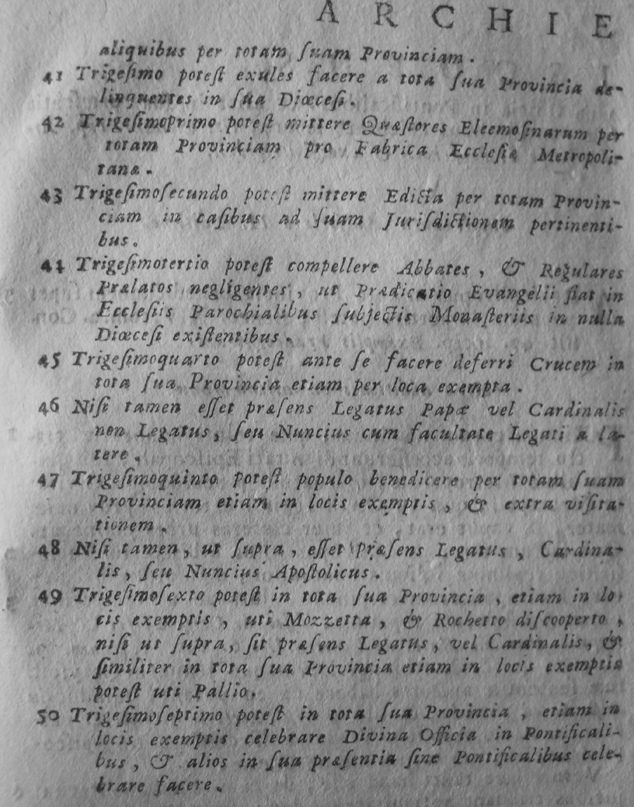 ARCHIE
aliquibus per totam ſuam Provinciam.
41 Trigeſimo poteſt exules facere a tota ſua Provincia de-
linquentes in ſua Diœceſi.
42 Trigeſimoprimo poteſt mittere Quæſtores Eleemoſinarum per
totam Provinciam pro Fabrica Ecclesiæ Metropoli-
tanæ.
43 Trigeſimoſecundo poteſt mittere Edicta per totam Provin-
ciam in caſibus ad ſuam Juriſdictionem pertinenti-
bus.
44 Trigeſimotertio poteſt compellere Abbates, & Regulares
Prælatos negligentes, ut Prædicatio Evangelii fiat in
Eccleſiis Parochialibus ſubjectis Monaſteriis in nulla
Diœceſi exiſtentibus.
45 Trigeſimoquarto poteſt ante ſe facere deferri Crucem in
tota ſua Provincia etiam per loca exempta.
46 Niſi tamen eſſet præſens Legatus Papæ vel Cardinalis
non Legatus, ſeu Nuncius cum facultate Legati a la-
tere.
47 Trigeſimoquinto poteſt populo benedicere per totam ſuam
Provinciam etiam in locis exemptis, & extra viſita-
tionem.
48 Niſi tamen, ut ſupra, eſſet præſens Legatus, Cardina-
lis, ſeu Nuncius Apoſtolicus.
49 Trigeſimoſexto poteſt in tota ſua Provincia, etiam in lo-
cis exemptis, uti Mozzetta, & Rochetto diſcooperto,
niſi ut ſupra, ſit præſens Legatus, vel Cardinalis, &
ſimiliter in tota ſua Provincia etiam in locis exemptis
poteſt uti Pallio.
50 Trigeſimoſeptimo poteſt in tota ſua Provincia, etiam in
locis exemptis celebrare Divina Officia in Pontificali-
bus, & alios in ſua præſentia ſine Pontificalibus cele-
brare facere.